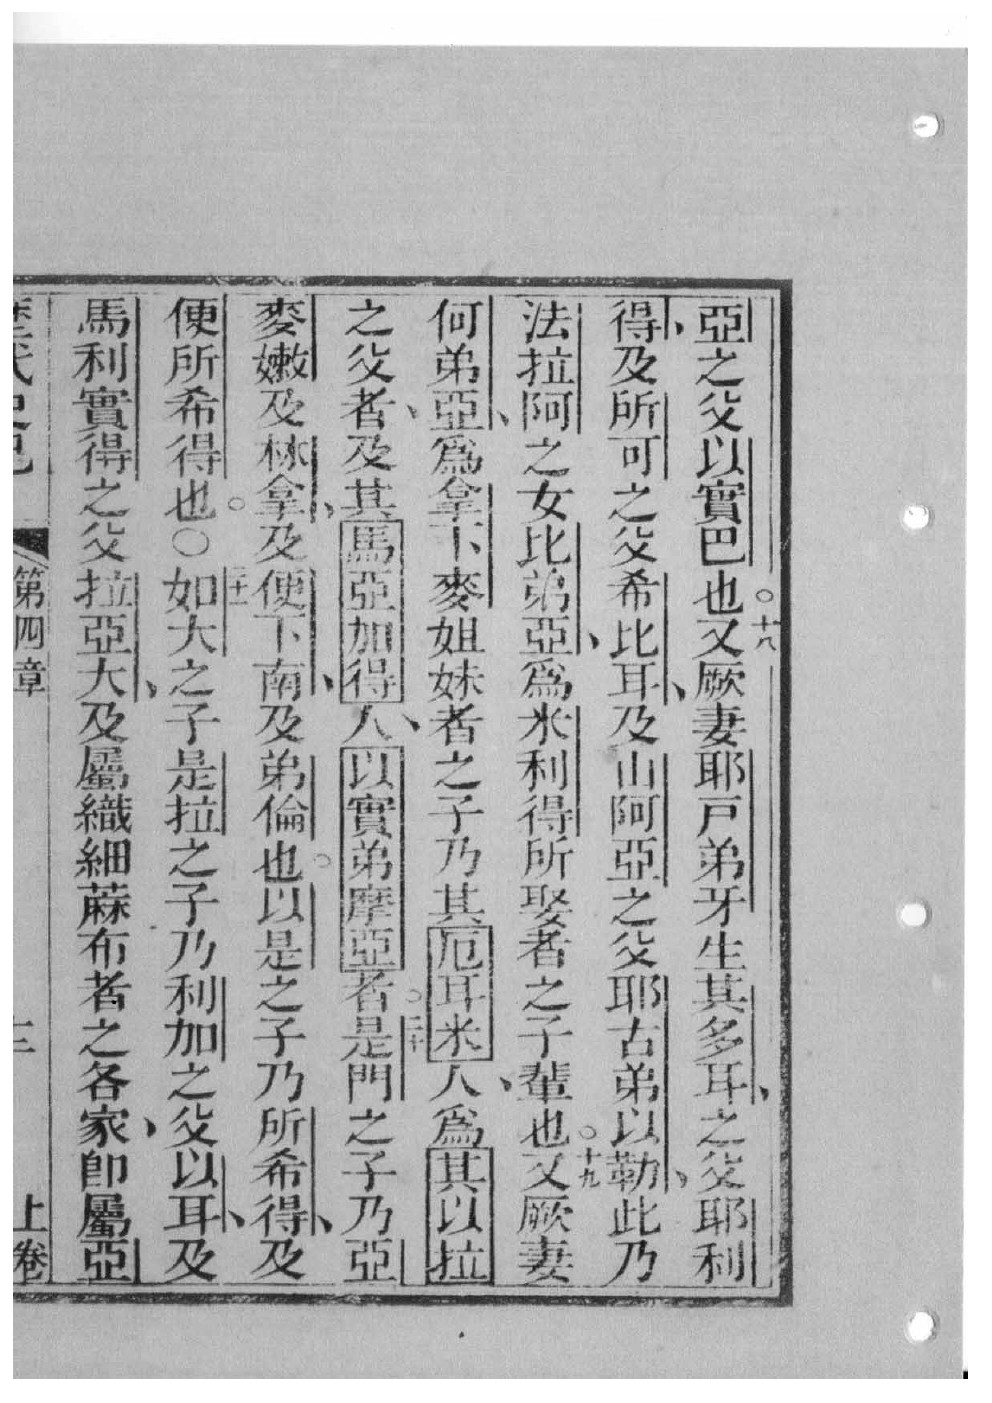 亞之父以實巴也。十八又厥妻耶戸弟牙生其多耳、之父耶利
得、及所可之父希比耳、及山阿亞之父耶古弟以勒、此乃
法拉阿之女比弟亞、爲米利得所娶者之子輩也。十九又厥妻
何弟亞、爲拿下麥姐妹者之子乃其厄耳米人、爲其以拉
之父者、及其馬亞加得人、以實弟摩亞者。二十是門之子乃亞
麥嫩及林拿、及便下南、及弟倫也。以是之子乃所希得、及
便所希得也。〇二十一如大之子是拉之子乃利加之父以耳、及
馬利實得之父拉亞大、及屬織細蔴布者之各家、卽屬亞
歷代史記 第四章 三 上卷